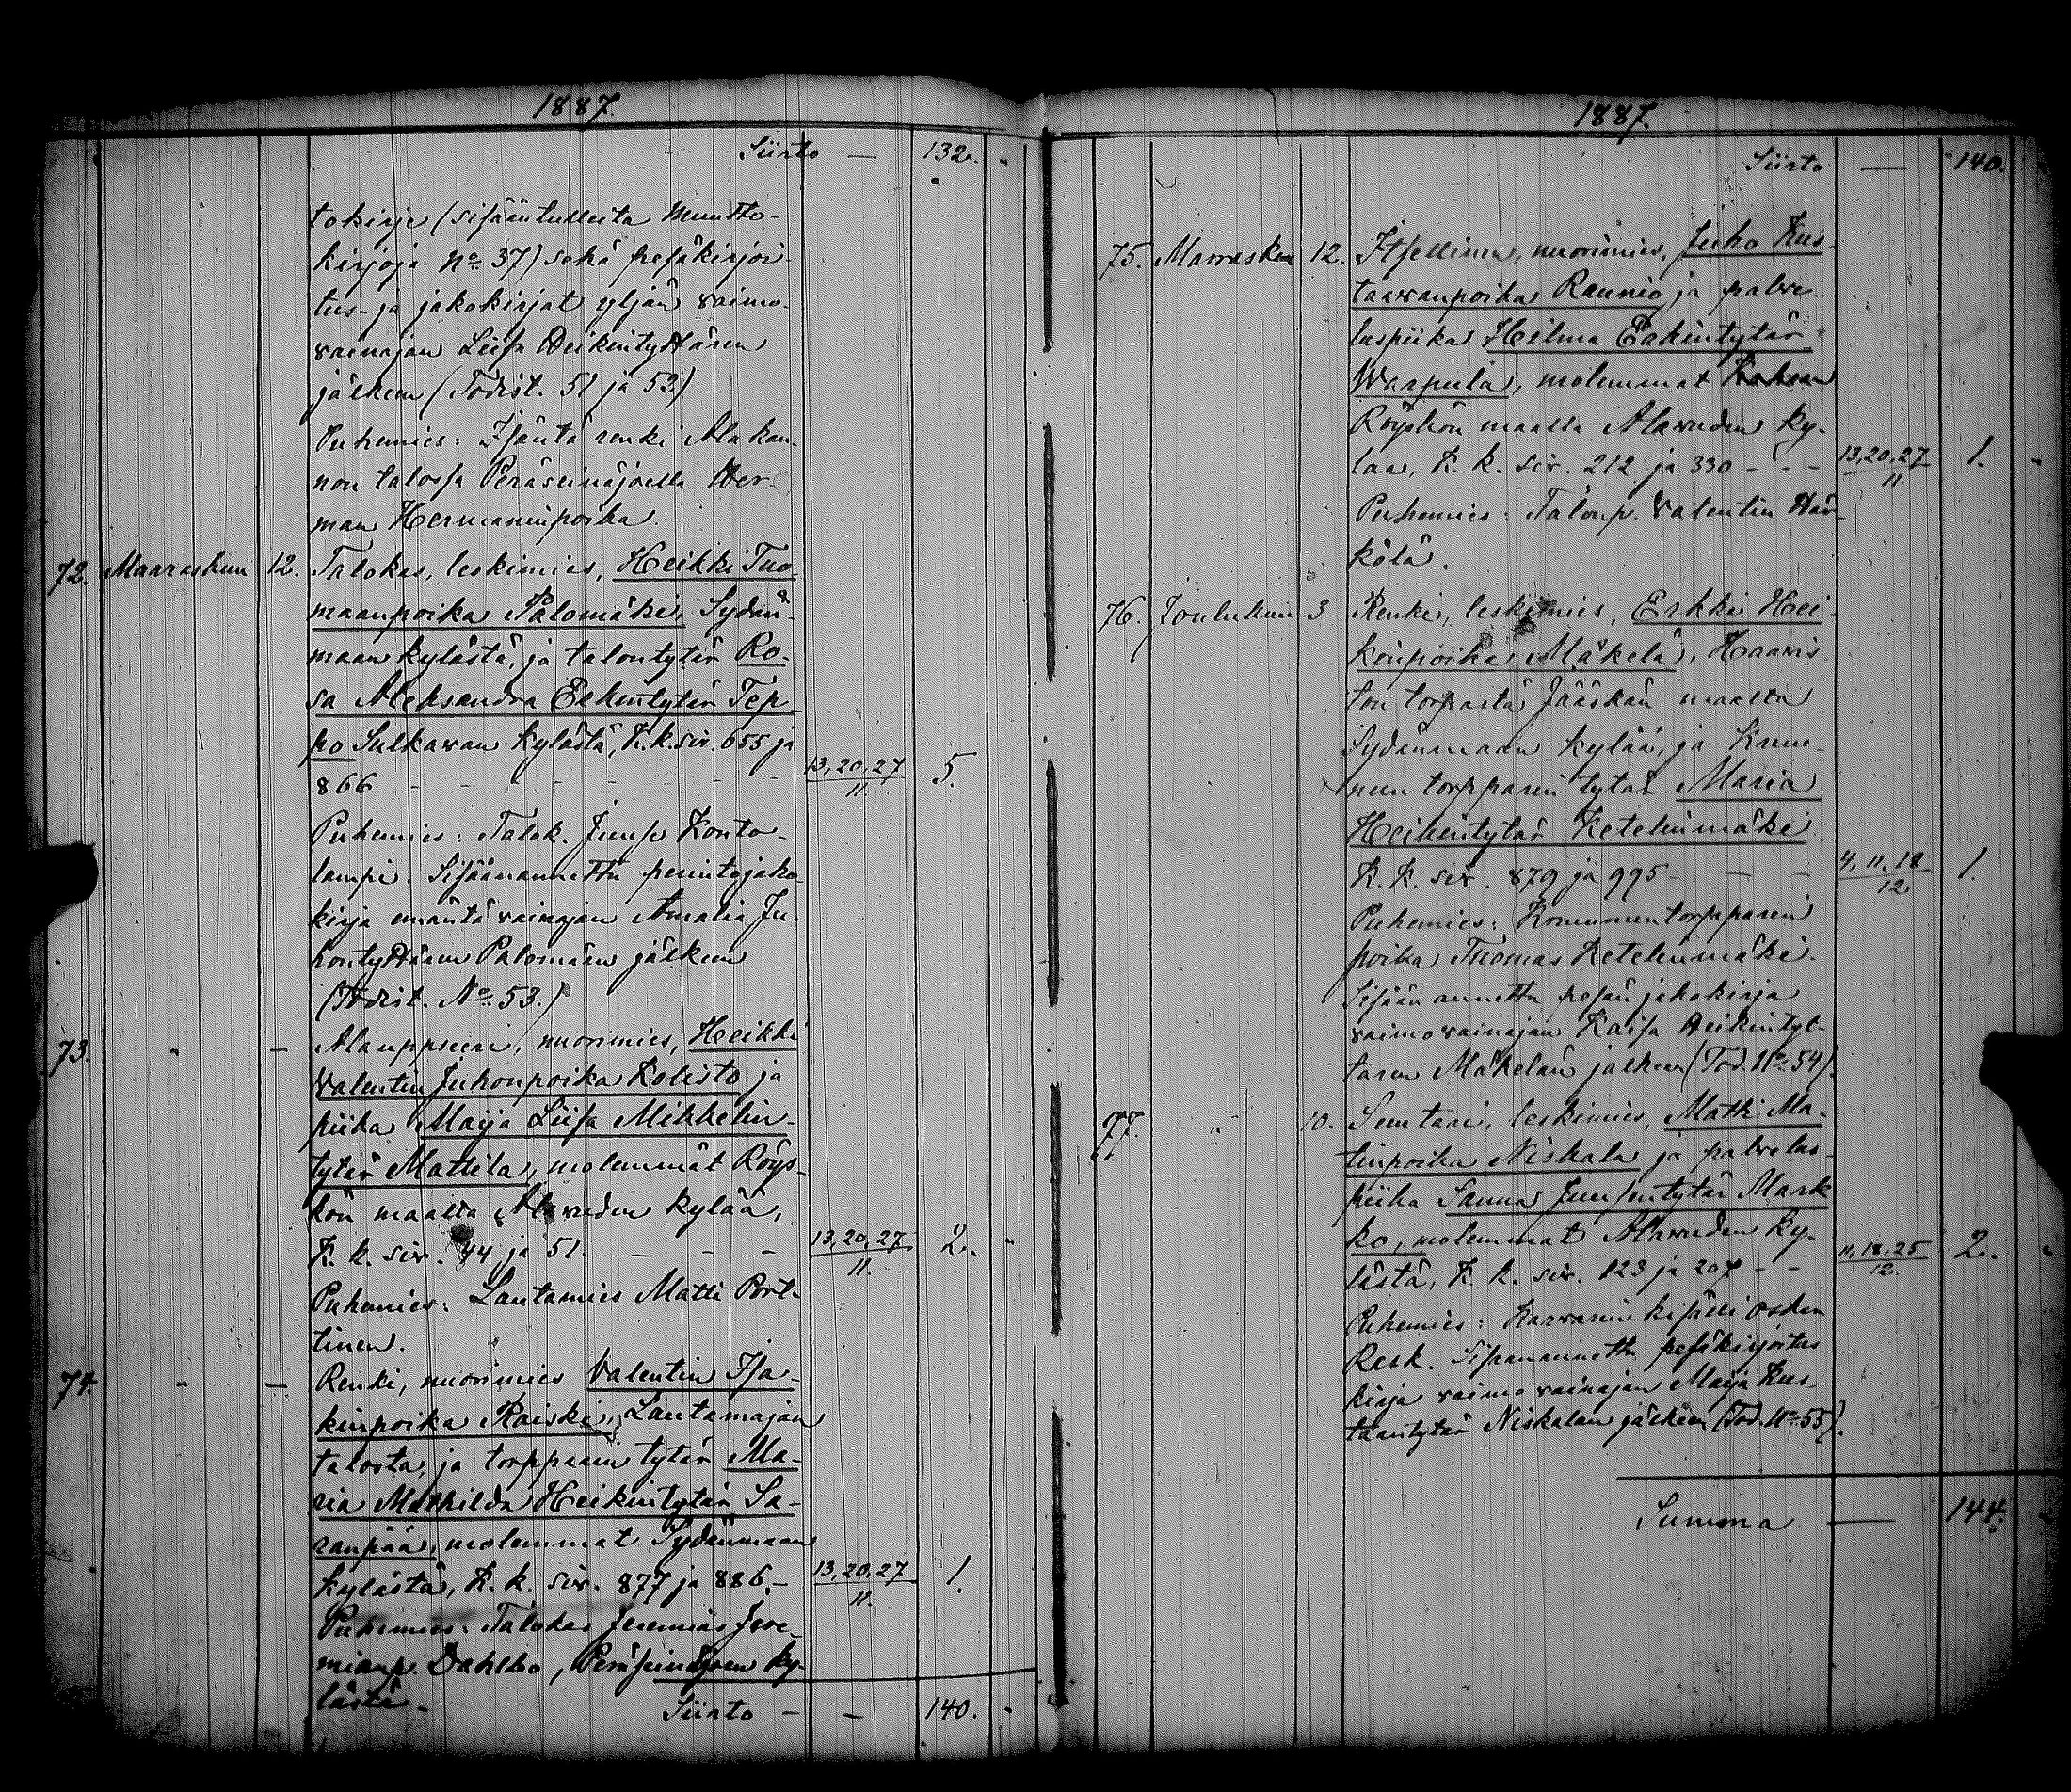 1887.
Siirto — 132.
tokirje (sisääntulleita muutto-
kirjoja No 37) sekä pesäkirjoi-
tus- ja jakokirjat yljän vaimo-
vainajan Liisa Heikintyttären
jälkeen (Todist. 51 ja 52)
Puhemies: Isäntä renki Alakan-
non talossa Peräseinäjoella Her-
man Hermanninpoika.
72. Marraskuu 12. Talokas, leskimies, Heikki Tuo-
maanpoika Palomäki, Sydän-
maan kylästä, ja talontytär Ro-
sa Aleksandra Erkintytär Tep-
po Sulkavan kylästä, K.k. siv. 655 ja
866 - - - - 13,20,27/11. 5.
Puhemies: Talok. Juuse Konto-
lampi. Sisäänannettu perintöjako-
kirja emäntä vainajan Amalia Ju-
hontyttären Palomäen jälkeen
(Todist. No 53.)
73. " — Alaupseeri, nuorimies, Heikki
Valentin Juhonpoika Kolisto ja
piika Maija Liisa Mikkelin-
tytär Mattila, molemmat Röys-
kön maalta Alavuden kylää,
K. k. siv. 44 ja 51. - - - 13,20,27/11. 2.
Puhemies: Lautamies Matti Port-
tinen.
74. " — Renki, nuorimies Valentin Isa-
kinpoika Raiski, Lautamajan
talosta, ja torpparin tytär Ma-
ria Mathilda Heikintytär Sa-
ranpää, molemmat Sydänmaan
kylästä, K. k. siv. 877 ja 886.- 13,20,27/11. 1.
Puhemies: Talokas Jeremias Jere-
mianp. Dahlbo, Peräseinäjoen ky-
lästä.
Siirto - - 140.
1887.
Siirto — 140.
75. Marraskuu 12. Itsellinen, nuorimies, Juho Kus-
taavanpoika Raunio ja palve-
luspiika Hilma Erkintytär
Warpula, molemmat
Röyskön maalta Alavuden ky-
lää, K. k. siv. 212 ja 330 - - - 13,20,27/11 1.
Puhemies: Talonp. Valentin Här-
kölä.
76. Joulukuu 3 Renki, leskimies, Erkki Hei-
kinpoika Mäkelä, Haavis-
ton torpasta Jääskän maalta
Sydänmaan kylää, ja Kruu-
nun torpparin tytär Maria
Heikintytär Ketelinmäki
K. K. siv. 879 ja 995 - — - 4,11,18/12. 1.
Puhemies: Kruununtorpparin
poika Thomas Ketelinmäki.
Sisään annettu pesän jakokirja
vaimovainajan Kaisa Heikintyt-
tären Mäkelän jälkeen (Tod. No 54).
77. " 10. Suutari, leskimies, Matti Ma-
tinpoika Niskala ja palvelus-
piika Sanna Juusentytär Mark-
ko, molemmat Alavuden ky-
lästä, K. k. siv. 123 ja 207 - - 11,18,25/12. 2.
Puhemies: Karvarin kisälli Oskar
Rask. Sisäänannettu pesäkirjoitus
kirja vaimo vainajan Maija Kus-
taantytär Niskalan jälkeen (Tod. No 55).
Summa — 144.